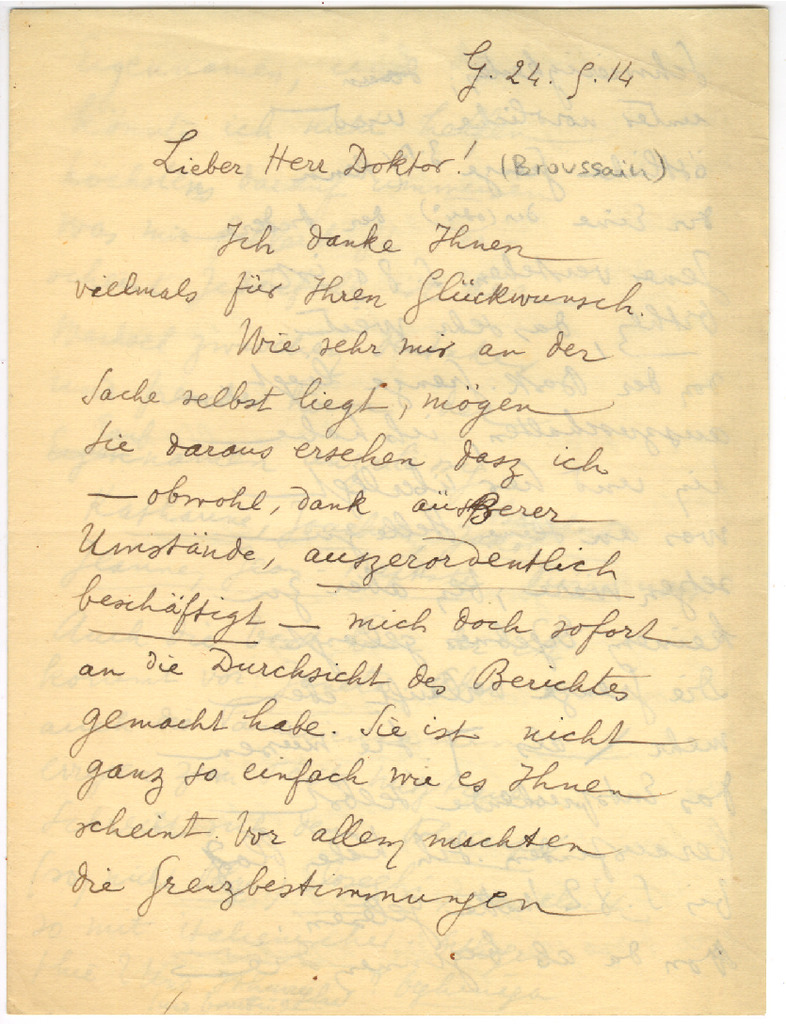 G. 24. 5. 14
Lieber Herr Doktor! (Broussain)
Ich danke Ihnen
vielmals für Ihren Glückwunsch.
Wie sehr mir an der
Sache selbst liegt, mögen
Sie daraus ersehen dasz ich
— obwohl, dank äusBerer
Umstände, auszerordentlich
beschäftigt — mich doch sofort
an die Durchsicht des Berichtes
gemacht habe. Sie ist nicht
ganz so einfach wie es Ihnen
scheint. Vor allem machten
die Grenzbestimmungen